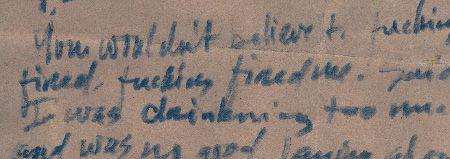 You wouldn't believe t. fucking
fired. fucking fired me. said
I was drinkning too mu
and was no good